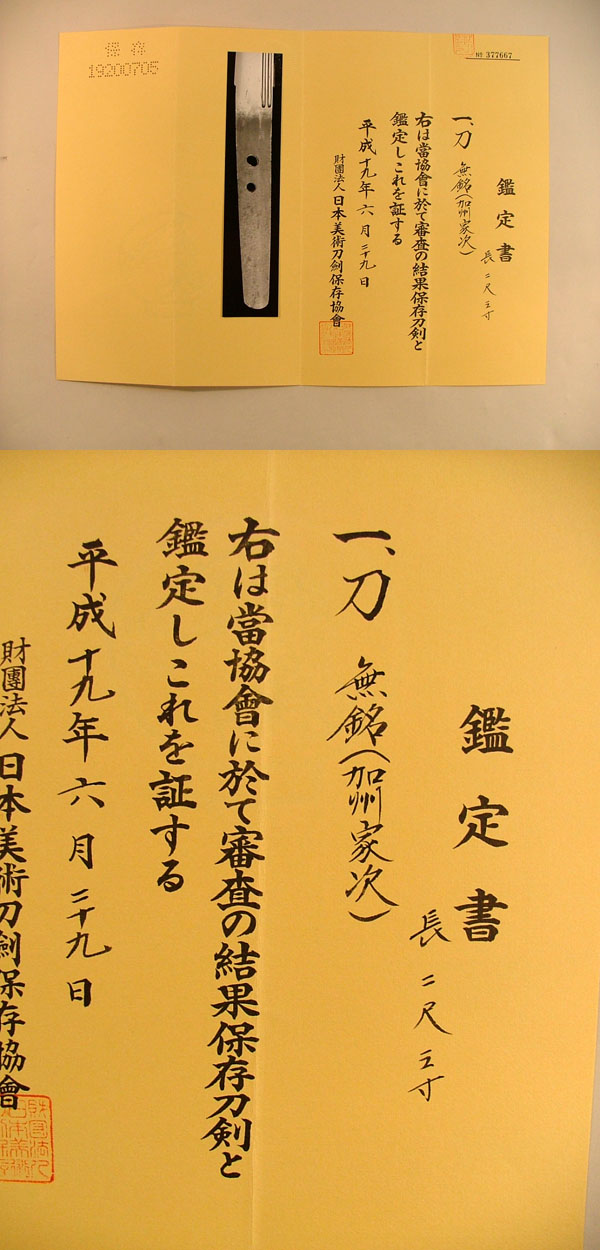 保存
19200705
№ 377667
鑑定書
一、刀 無銘(加州家次)
長二尺三寸
右は當協會に於て審査の結果保存刀剣と
鑑定しこれを証する
平成十九年六月二十九日
財團法人日本美術刀劍保存協會
鑑定書
一、刀 無銘(加州家次)
長二尺三寸
右は當協會に於て審査の結果保存刀剣と
鑑定しこれを証する
平成十九年六月二十九日
財團法人日本美術刀劍保存協會